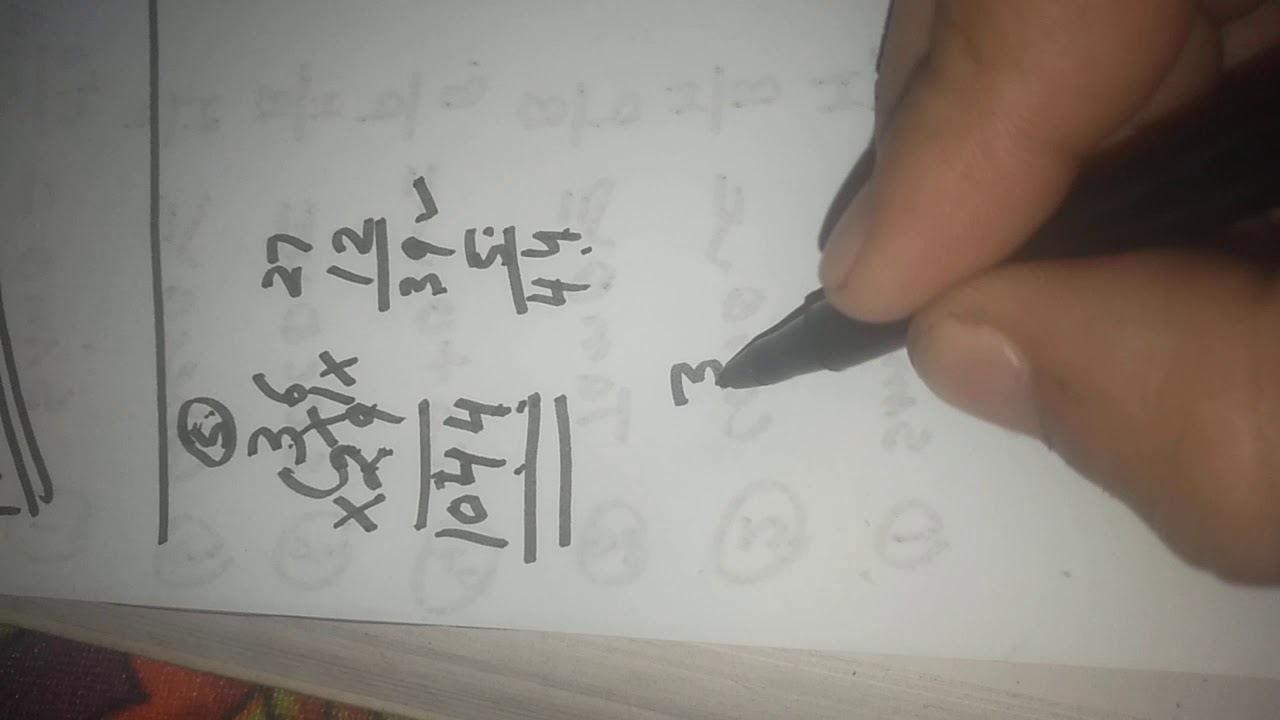 ⑤
36 27
×29 12
1044 39 ✓
5
44
3